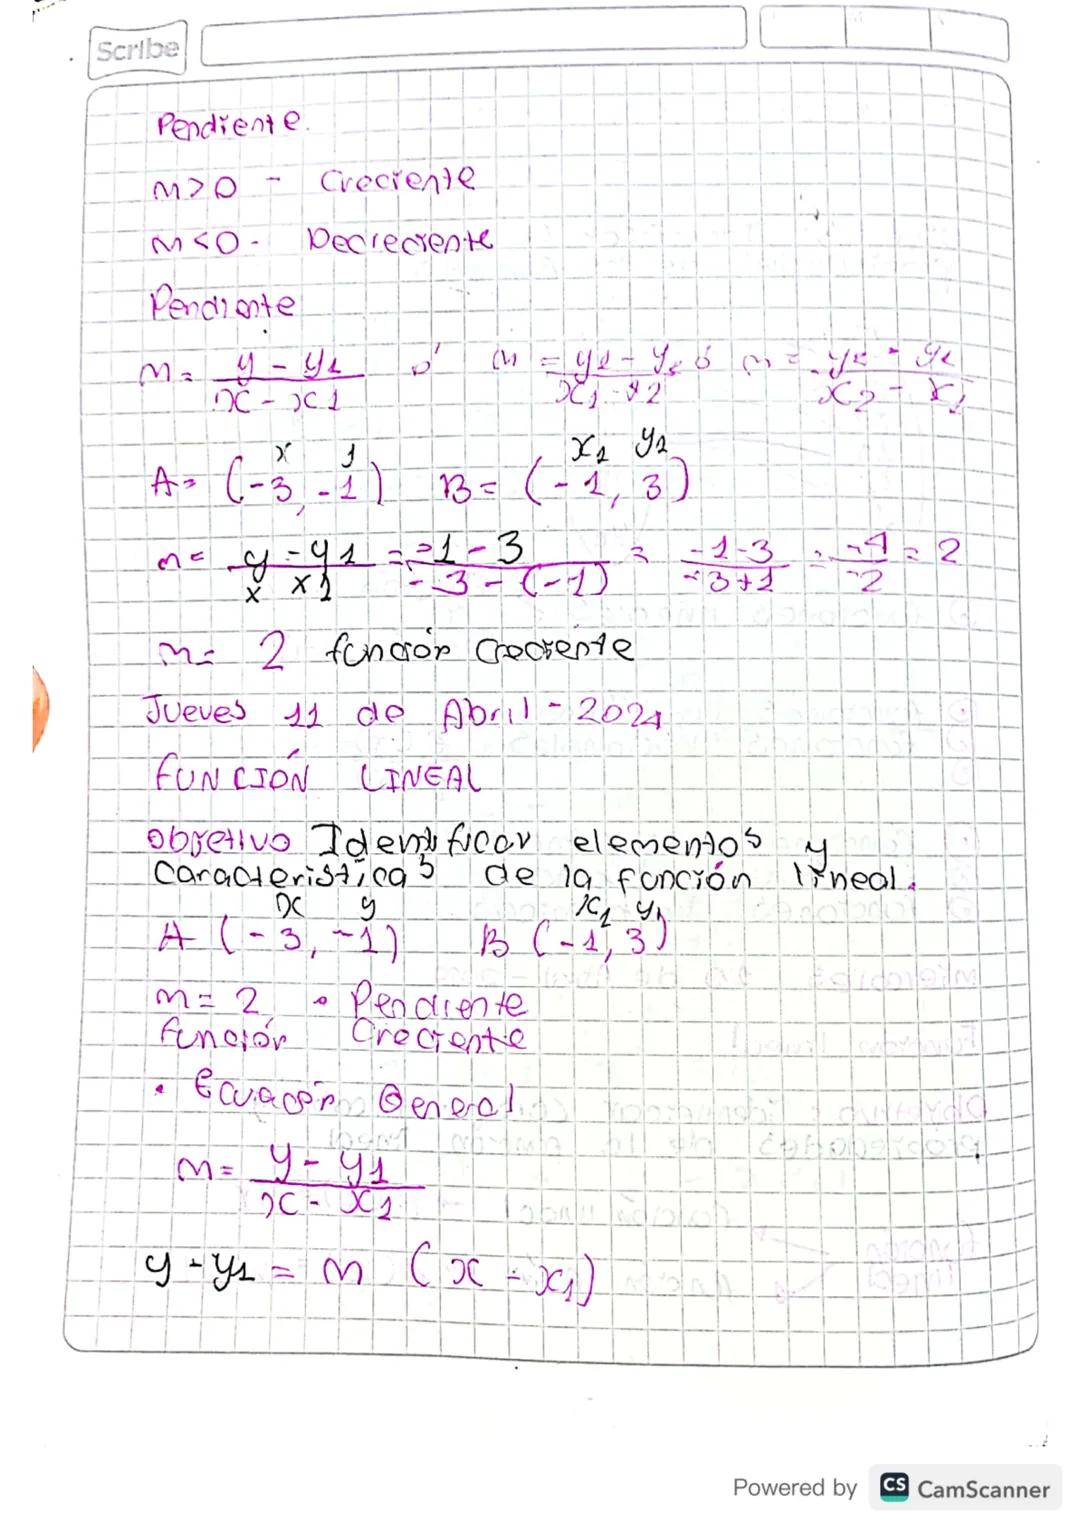 Scribe
Pendiente.
m>0 - Creciente
m<0 - Decreciente
Pendiente
m = y - y1 / x - x1 ó m = y1 - y2 / x1 - x2 ó m = y2 - y1 / x2 - x1
x y x1 y2
A = (-3, -1) B = (-1, 3)
m = y - y1 / x x1 = -1 - 3 / -3 - (-1) = -1-3 / -3+1 = -4 / -2 = 2
m = 2 función Creciente
Jueves 11 de Abril - 2024
FUNCIÓN LINEAL
Objetivo Identificar elementos y
Caracteristicas de la función lineal.
x y x1 y1
A (-3, -1) B (-1, 3)
m = 2 • Pendiente
función Creciente
• Ecuación General
m = y - y1 / x - x1
y - y1 = m (x - x1)
Powered by CS CamScanner